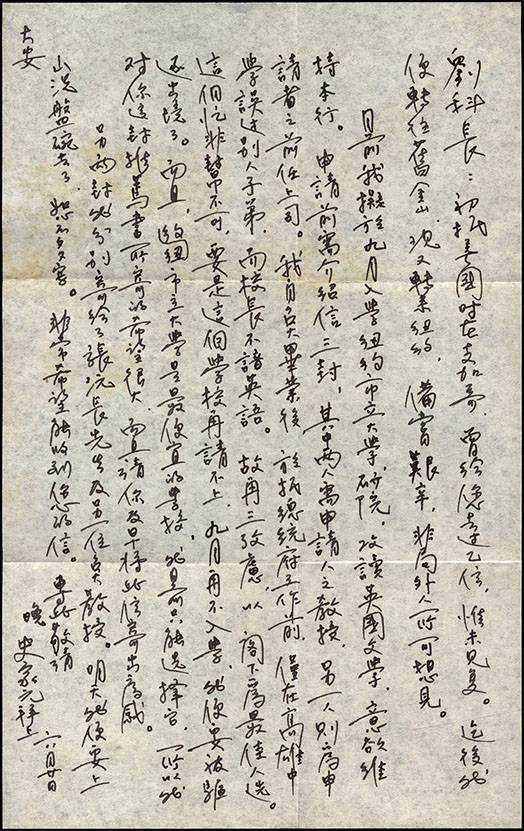 劉科長：初抵美國時在支加哥，曾給您去過乙信，惟未見復。迄後我
便轉往舊金山，現又轉來紐約，備嘗艱辛，非局外人所可想見。
目前我擬於九月入學紐約市立大學研院，攻讀英國文學，意欲維
持本行。申請前需介紹信三封，其中兩人需申請人之教授，另一人則為申
請者之前任上司。我自台大畢業後，於抵總統府工作前，僅在高雄中
學誤過別人子弟，而校長不諳英語。故再三攷慮，以閣下為最佳人選。
這個忙非幫不可，要是這個學校再請不上，九月再不入學，我便要被驅
逐出境了。而且，這紐市立大學是最便宜的學校，我目前只能選擇它，所以我
對你這封推薦書所寄的希望很大，而且請你及早將此信寄出為感。
另兩封我分別寄給了張院長先生及另一位台大教授。明天我便要上
山洗盤碗去了，恕不多寫。非常希望能收到您的信。專此敬請
大安
晚 史家元拜上 六月廿日